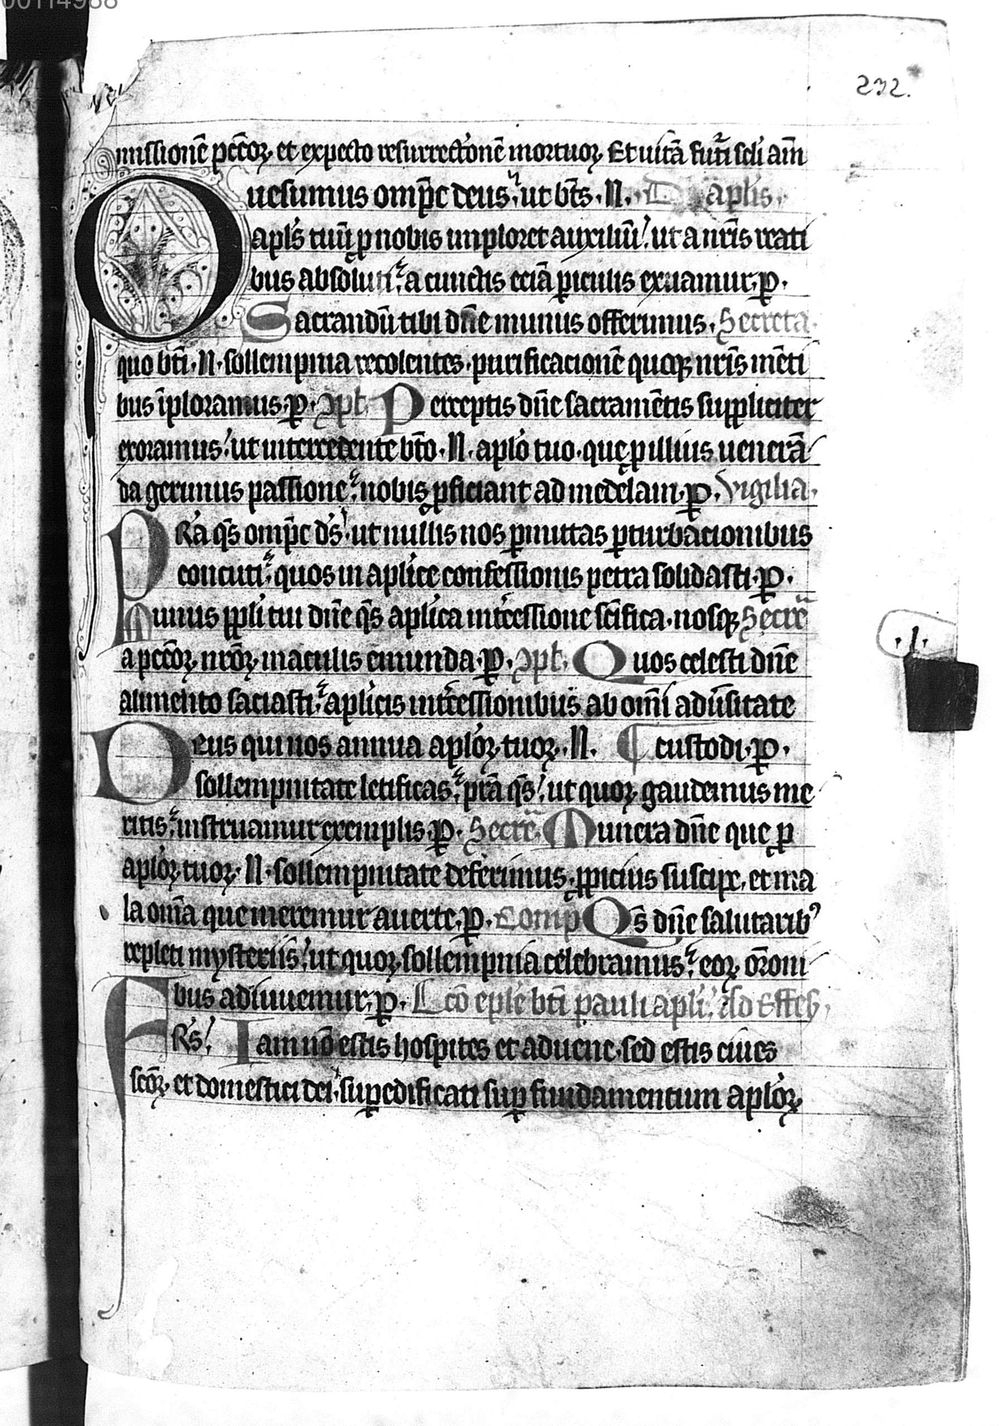 00114988
232.
missionē pccōꝝ et expecto resurrectōnē mortuoꝝ Et uitā futī scli am̄
Quesumus omp̄c deus ut bt̄s N. D aplis
apls tuꝰ ꝑ nobis imploret auxiliū ut a nrīs reati
bus absoluti a cunctis eciā ꝑiculis exuamur. ꝑ.
Sacrandū tibi dn̄e munus offerimus. Secreta.
quo bt̄i N. sollempnia recolentes. purificacionē quoqꝫ nrīs mēti
bus īploramus. ꝑ. ɔpl. Perceptis dn̄e sacramētis suppliciter
exoramus ut intercedente bt̄o N. aplo tuo. que ꝑ illius uenerā
da gerimus passione. nobis ꝓficiant ad medelam. ꝑ. Vigilia.
Pr̄a qs omp̄c ds ut nullis nos ꝑmittas ꝑturbacionibus
concuti. quos in aplice confessionis petra solidasti. ꝑ.
Munus ppli tui dn̄e qs aplica int̄cessione scīfica. nosqꝫ Secrē
a pccōꝝ nrōꝝ maculis emunda. ꝑ. ɔpl. Quos celesti dn̄e
alimento saciasti. aplicis int̄cessionibus ab omī adūsitate
Deus qui nos annua aploꝝ tuoꝝ N. ¶ custodi. ꝑ.
sollempnitate letificas. pr̄a qs ut quoꝝ gaudemus me
ritis. instruamur exemplis. ꝑ. Secrē. Munera dn̄e que ꝑ
aploꝝ tuoꝝ N. sollempnitate deferimus. ꝓpicius suscipe, et ma
la om̄ia que meremur auerte. ꝑ. Comp Qs dn̄e salutaribꝰ
repleti mysteriis ut quoꝝ sollempnia celebramus. eoꝝ or̄oni
bus adiuuemur. ꝑ. Lcō eple bt̄i pauli apli. Ad Effeh.
Frs Iam nō estis hospites et aduene. sed estis ciues
scōꝝ et domestici dei suꝑedificati suꝑ fundamentum aploꝝ
.l.